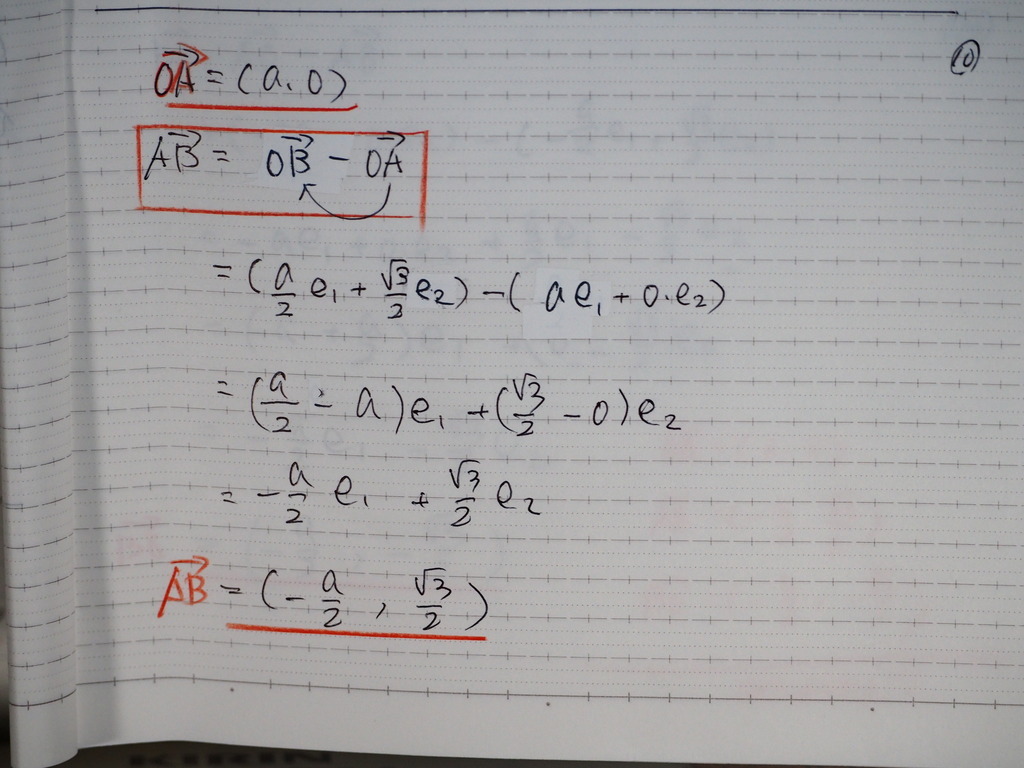 ⑩
OA = (a, 0)
AB = OB - OA
= (a/2 e₁ + √3/2 e₂) - (a e₁ + 0·e₂)
= (a/2 - a) e₁ + (√3/2 - 0) e₂
= -a/2 e₁ + √3/2 e₂
AB = (-a/2, √3/2)